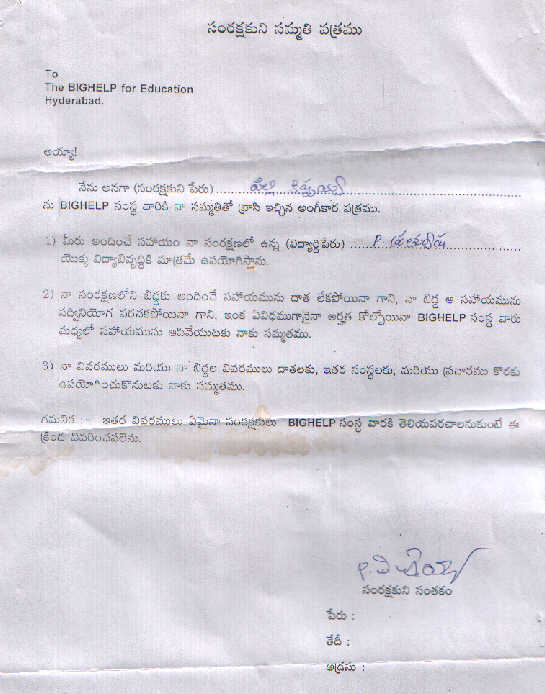 సంరక్షకుని సమ్మతి పత్రము
To
The BIGHELP for Education
Hyderabad.
అయ్యా!
నేను అనగా (సంరక్షకుని పేరు)
ను BIGHELP సంస్థ వారికి నా సమ్మతితో వ్రాసి ఇచ్చిన అంగీకార పత్రము.
1) మీరు అందించే సహాయం నా సంరక్షణలో ఉన్న (విద్యార్థిపేరు) P.
యొక్క విద్యాభివృద్ధికి మాత్రమే ఉపయోగిస్తాను.
2) నా సంరక్షణలోని బిడ్డకు అందించే సహాయమును దాత లేకపోయినా గాని, నా బిడ్డ ఆ సహాయమును
సద్వినియోగ పరచకపోయినా గాని, ఇంక ఏవిధముగానైనా అర్హత కోల్పోయినా BIGHELP సంస్థ వారు
మధ్యలో సహాయమును ఆపివేయుటకు నాకు సమ్మతము.
3) నా వివరములు మరియు నా బిడ్డల వివరములు దాతలకు, ఇతర సంస్థలకు, మరియు ప్రచారము కొరకు
ఉపయోగించుకొనుటకు నాకు సమ్మతము.
గమనిక : ఇతర వివరములు ఏమైనా సంరక్షకులు BIGHELP సంస్థ వారికి తెలియపరచాలనుకుంటే ఈ
క్రింద వివరించవలెను.
సంరక్షకుని సంతకం
పేరు :
తేదీ :
అడ్రసు :